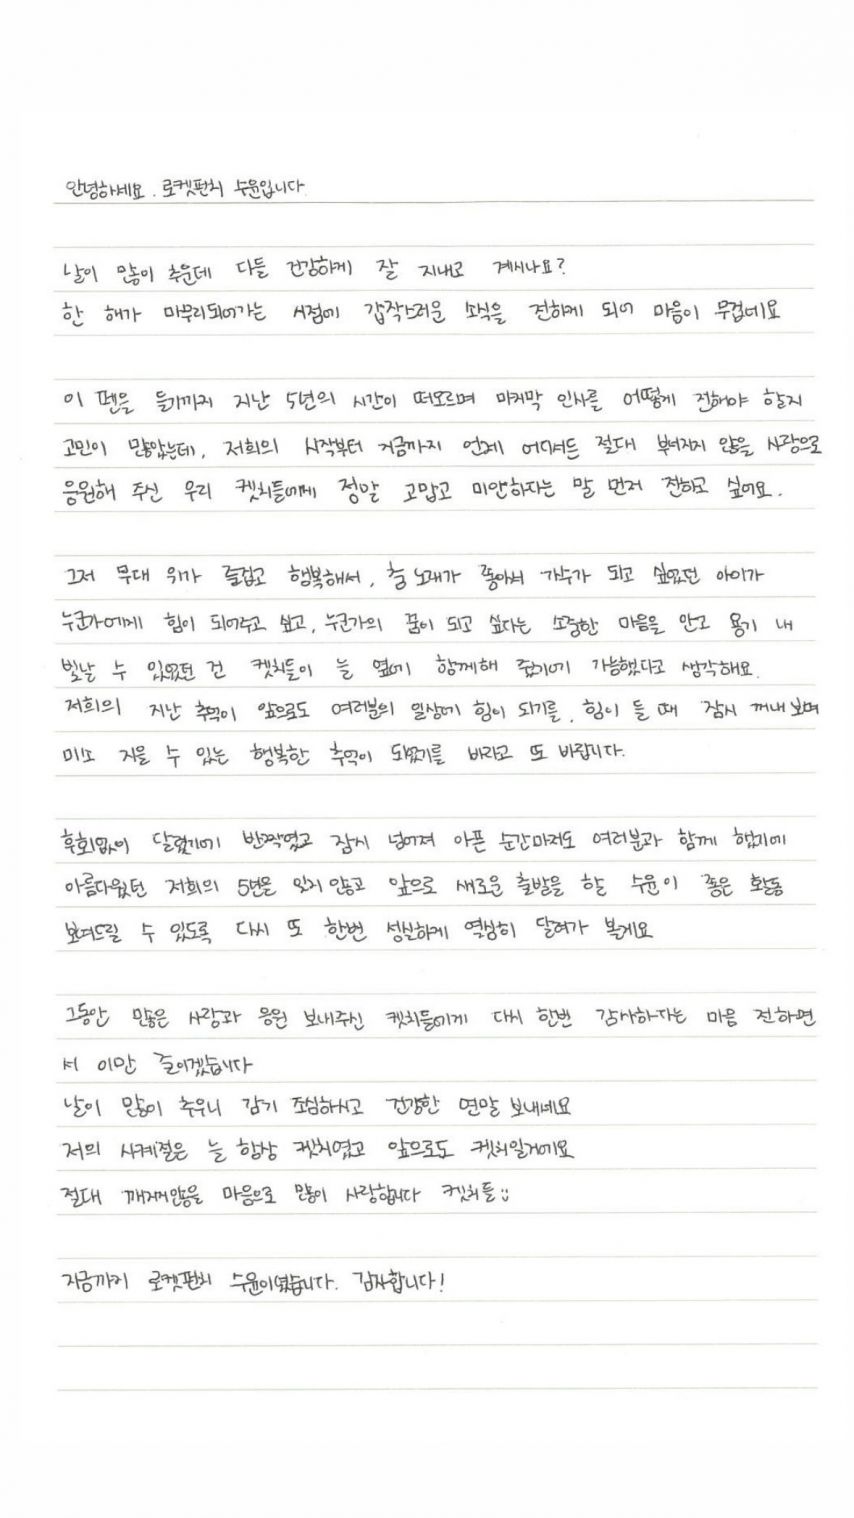 안녕하세요. 로켓펀치 수윤입니다.
날이 많이 추운데 다들 건강하게 잘 지내고 계시나요?
한 해가 마무리되어가는 시점에 갑작스러운 소식을 전하게 되어 마음이 무겁네요
이 펜을 들기까지 지난 5년의 시간이 떠오르며 마지막 인사를 어떻게 전해야 할지
고민이 많았는데, 저희의 시작부터 지금까지 언제 어디서든 절대 부서지지 않을 사랑으로
응원해 주신 우리 켓치들에게 정말 고맙고 미안하다는 말 먼저 전하고 싶어요.
그저 무대 위가 즐겁고 행복해서, 춤 노래가 좋아서 가수가 되고 싶었던 아이가
누군가에게 힘이 되어주고 싶고, 누군가의 꿈이 되고 싶다는 소중한 마음을 안고 용기 내
빛날 수 있었던 건 켓치들이 늘 옆에 함께해 줬기에 가능했다고 생각해요.
저희의 지난 추억이 앞으로도 여러분의 일상에 힘이 되기를, 힘이 들 때 잠시 꺼내 보며
미소 지을 수 있는 행복한 추억이 되었기를 바라고 또 바랍니다.
후회없이 달렸기에 반짝였고 잠시 넘어져 아픈 순간마저도 여러분과 함께 했기에
아름다웠던 저희의 5년을 잊지 않고 앞으로 새로운 출발을 할 수윤이 좋은 활동
보여드릴 수 있도록 다시 또 한번 성실하게 열심히 달려가 볼게요
그동안 많은 사랑과 응원 보내주신 켓치들에게 다시 한번 감사하다는 마음 전하면
서 이만 줄이겠습니다
날이 많이 추우니 감기 조심하시고 건강한 연말 보내세요
저의 사계절은 늘 항상 켓치였고 앞으로도 켓치일거에요
절대 깨지지않을 마음으로 많이 사랑합니다 켓치들:)
지금까지 로켓펀치 수윤이였습니다. 감사합니다!